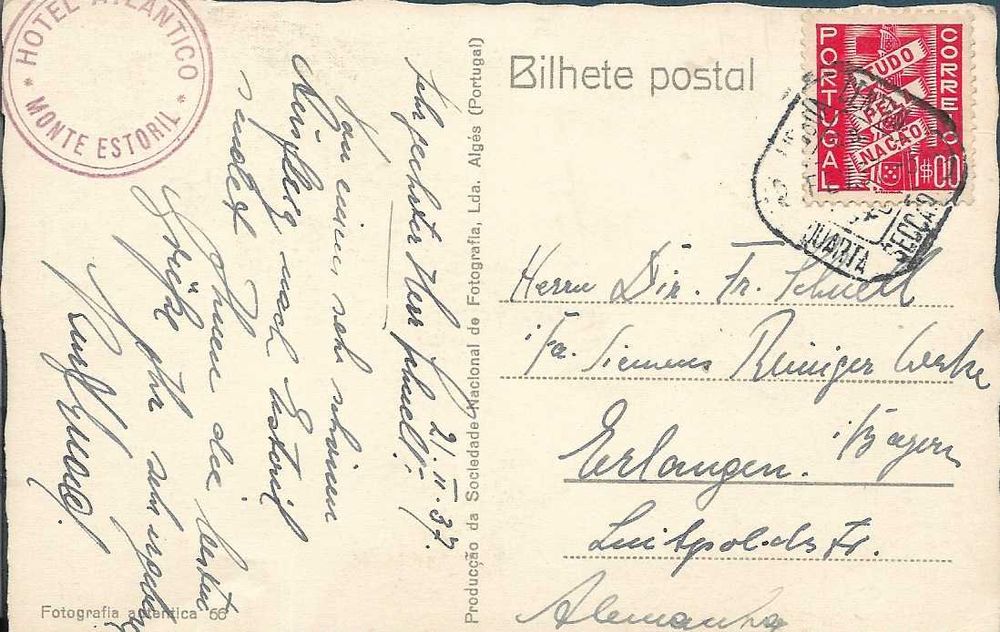 HOTEL ATLANTICO
* MONTE ESTORIL *
Bilhete postal
PORTUGAL
CORREIO
TUDO
PELA
NAÇÃO
1$00
QUARTA SECCÃO
Sehr geehrter Herr Schnell!
21.II.37.
Von einem sehr schönen
Ausflug nach Estoril
sendet Ihnen die besten
Grüße Ihr sehr
Herrn Dir. Fr. Schnell
i/Fa. Siemens Reiniger Werke
Erlangen. i/Bayern
Luitpoldstr.
Alemanha
Producção da Sociedade Nacional de Fotografia, Lda. Algés (Portugal)
Fotografia autentica 66